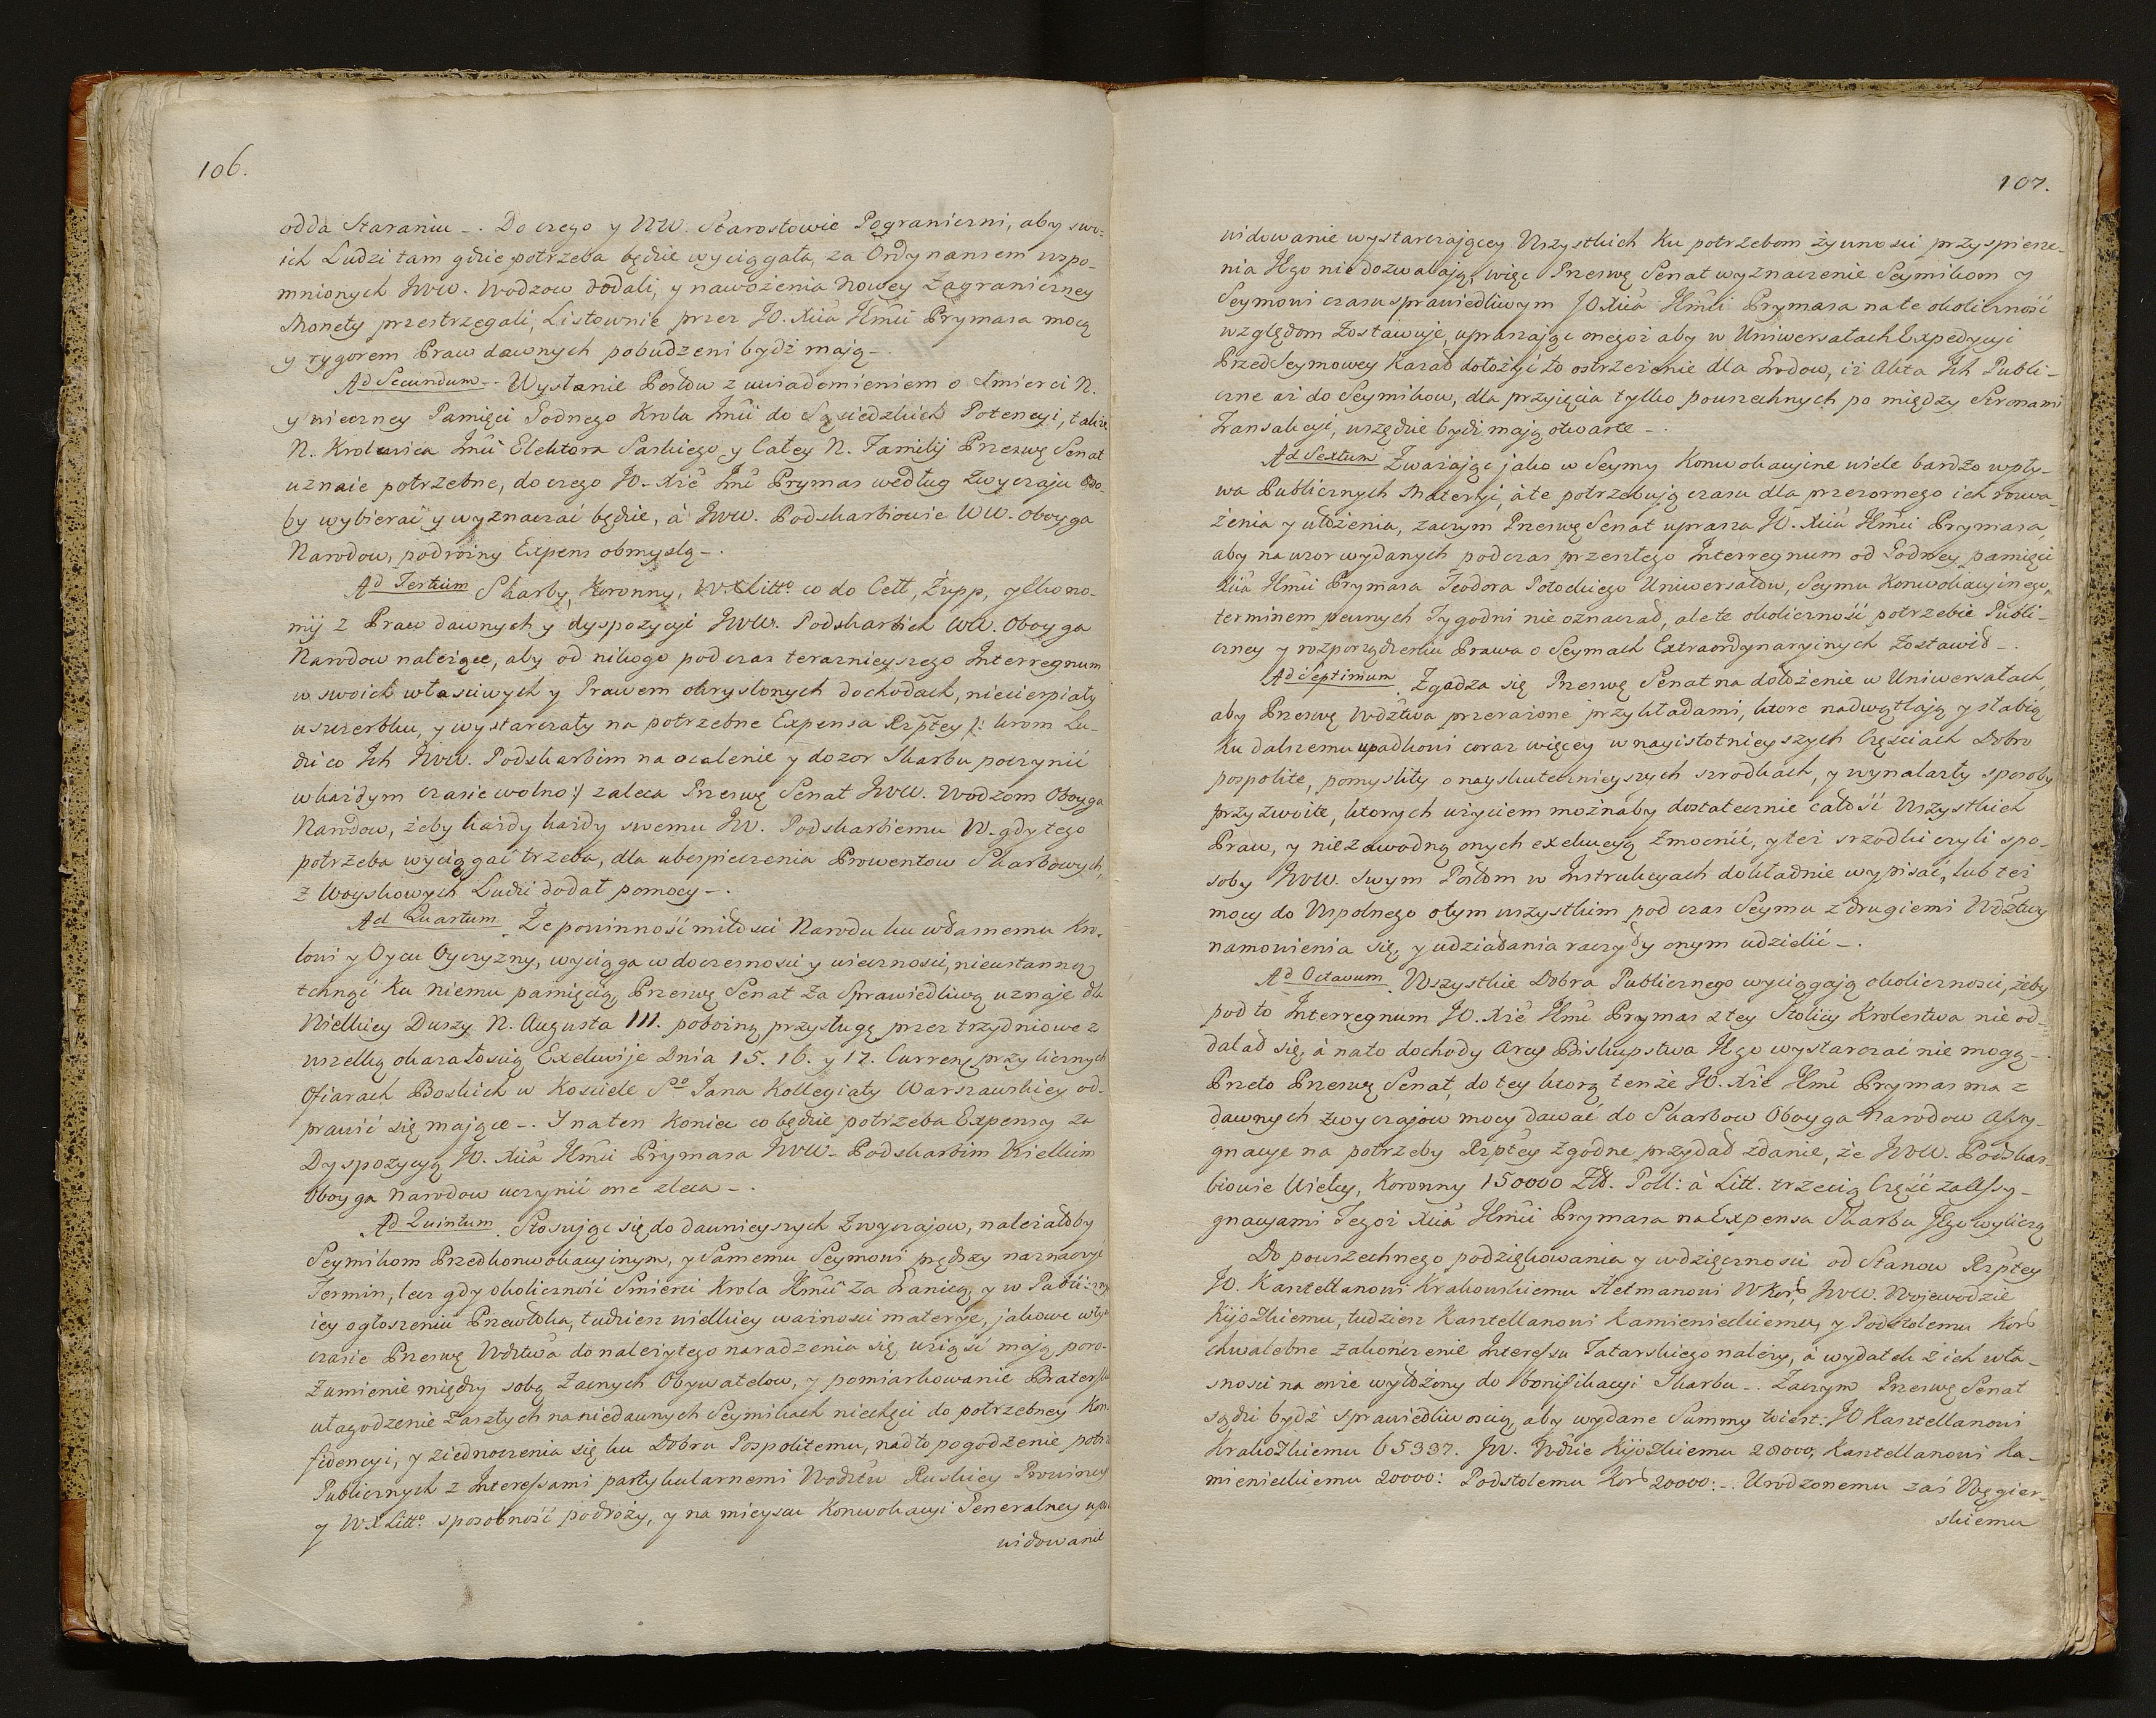 106.
odda Staraniu -. Do czego y WW. Starostowie Pograniczni, aby swo=
ich Ludzi tam gdzie potrzeba będzie wyciągała, za Ordynansem wspo-
mnionych JWW. Wodzow dodali, y nawożenia Nowey Zagraniczney
Monety przestrzegali, Listownie przez JO. Xcia Jmći Prymasa mocą
y rygorem Praw dawnych pobudzeni bydź mają -.
Ad Secundum -. Wysłanie Posłow z uwiadomieniem o Smierci N.
y wieczney Pamięci Godnego Krola Jmći do Sąsiedzkich Potencyi, także
N. Krolewica Jmći Elektora Saskiego y Całey N. Familij Prześwę Senat
uznaie potrzebne, do czego JO. Xże Jmć Prymas według zwyczaju Oso-
by wybierać y wyznaczać będzie, à JWW. Podskarbiowie WW. oboyga
Narodow, podrożny Expens obmyslą -.
Ad Tertium Skarby, Koronny, W.X.Litto. co do Cełł, Żupp, y Ekono-
mij z Praw dawnych y dyspozycyi JWW. Podskarbich WW. Oboyga
Narodow należące, aby od nikogo pod czas teraznieyszego Interregnum
w swoich właściwych y Prawem okryslonych dochodach, niecierpiały
uszczerbku, y wystarczały na potrzebne Expensa Rzptey /: krom Lu-
dzi co Ich JWW. Podskarbim na ocalenie y dozor Skarbu poczynić
w każdym czasie wolno :/ zaleca Prześwę Senat JWW. Wodzom Oboyga
Narodow, żeby każdy każdy swemu JW. Podskarbiemu W. gdy tego
potrzeba wyciągać trzeba, dla ubespieczenia Prowentow Skarbowych,
z Woyskowych Ludzi dodał pomocy -.
Ad Quartum. Że powinność miłości Narodu ku własnemu Kro-
lowi y Oycu Oyczyzny, wyciąga w doczesności y wieczności, nieustanną
tchnąć Ku niemu pamięcią, Prześwę Senat za Sprawiedliwą uznaje dla
Wielkiey Duszy N. Augusta III. pobożną przysługę przez trzydniowe z
wszelką okazałością Exekwije Dnia 15. 16. y 17. Curreng przy licznych
Ofiarach Boskich w Kościele Sgo Jana Kollegiaty Warszawskiey od-
prawić się mające -. I na ten Koniec co będzie potrzeba Expensy za
Dyspozycyą JO. Xcia Jmći Prymasa JWW. Podskarbim Wielkim
Oboyga Narodow uczynić one zleca -.
Ad Quintum. Stosując się do dawnieyszych Zwyczajow, należałoby
Seymikom Przedkonwokacyinym, y Samemu Seymowi prędszy naznaczyć
Termin, lecz gdy okoliczność Smierci Krola Jmći za Granicą, y w Publiczny
iey ogłoszeniu Przewłoka, tudziesz wielkiey ważności materye, jakowe w tym
czasie Prześwę Wdztwa do należytego naradzenia się, wziąść mają poro-
zumienie między sobą zacnych Obywatelow, y pomiarkowanie Braterskie
ułagodzenie zaszłych na niedawnych Seymikach niechęci do potrzebney Kon-
fidencyi, y ziednoczenia się ku Dobru Pospolitemu, nadto pogodzenie potrz
Publicznych z Interessami partykularnemi Wodztw Ruskiey Prowincyi
y W.X.Litto. sposobność podroży, y na mieyscu Konwokacyi Generalney upro
widowanie
107.
widowanie wystarczającey Wszystkich Ku potrzebom żywności przyspiesze-
nia Jego nie dozwalają, więc Prześwę Senat wyznaczenie Seymikom y
Seymowi czasu sprawiedliwym JO. Xcia Jmći Prymasa na te okoliczność
względom zostawuje, upraszając onegoż aby w Uniwersałach Expedycyi
PrzedSeymowey Kazał dołożyć to ostrzeżenie dla Grodow, iż Akta Ich Publi-
czne aż do Seymikow, dla przyięcia tylko powszechnych po między Stronami
Transakcyi, wszędzie bydź mają otwarte -.
Ad Sextum Zważając jako w Seymy Konwokacyine wiele bardzo wpły-
wa Publicznych Materyi, à te potrzebują czasu dla przezornego ich rozwa-
żenia y ułożenia, zaczym Prześwę Senat uprasza JO. Xcia Jmći Prymasa,
aby na wzor wydanych podczas przeszłego Interregnum od Godney pamięci
Xcia Jmći Prymasa Teodora Potockiego Uniwersałow, Seymu Konwokacyinego,
terminem pewnych Tygodni nie oznaczał, ale te okoliczność potrzebie Publi-
czney y rozporządzeniu Prawa o Seymach Extraordynaryinych zostawił -.
Ad Septimum. Zgadza się Prześwę Senat na dołożenie w Uniwersałach,
aby Prześwę Wdztwa przerażone przykładami, ktore nadwątlają y słabią
Ku dalszemu upadkowi coraz więcey w nayistotnieyszych Częściach Dobro
pospolite, pomysliły o nayskutecznieyszych szrodkach, y wynalazły sposoby
przyzwoite, ktorych użyciem możnaby dostatecznie całość Wszystkich
Praw, y niezawodną onych exekucyą Zmocnić, y też srzodki czyli spo-
soby JWW. swym Posłom w Instrukcyach dokładnie wypisać, lub też
mocy do Wspolnego o tym wszystkim pod czas Seymu z drugiemi Wdztwy
namowienia się, y udziałania raczyły onym udzielić -.
Ad Octavum. Wszystkie Dobra Publicznego wyciągają okoliczności, żeby
pod to Interregnum JO. Xże Jmć Prymas z tey Stolicy Krolestwa nie od-
dalał się, à na to dochody Arcy Biskupstwa Jego wystarczać nie mogą -.
Przeto Prześwę Senat, do tey ktorą tenże JO. Xże Jmć Prymas ma z
dawnych zwyczajow mocy dawać do Skarbow Oboyga Narodow Assy-
gnacye na potrzeby Rzptey zgodne przydał zdanie, że JWW. Podskar-
biowie Wielcy, Koronny 150000 Złł. Poll: à Litt. trzecią Część za Assy-
gnacyami Tegoż Xcia Jmći Prymasa na Expensa Skarbu Jego wyliczą
Do powszechnego podziękowania y wdzięczności od Stanow Rzptey
JO. Kasztellanowi Krakowskiemu Hetmanowi W. Kor, JWW. Wojewodzie
Kijowskiemu, tudziesz Kasztellanowi Kamienieckiemu, y Podstolemu Kor
chwalebne zakończenie Interessu Tatarskiego należy, à wydatek z ich wła-
sności na onże wyłożony do bonifikacyi Skarbu -. Zaczym Prześwę Senat
sądzi bydź sprawiedliwością, aby wydane Summy to iest: JO Kasztellanowi
Krakowskiemu 65337. JW. Wdzie Kijowskiemu 28000, Kasztellanowi Ka-
mienieckiemu 20000: Podstolemu Kor 20000: -. Urodzonemu zaś Węgier-
skiemu